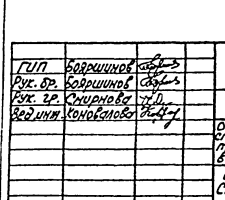 ГИП Бояршинов
Рук. бр. Бояршинов
Рук. гр. Смирнова
Вед.инж. Коновалова